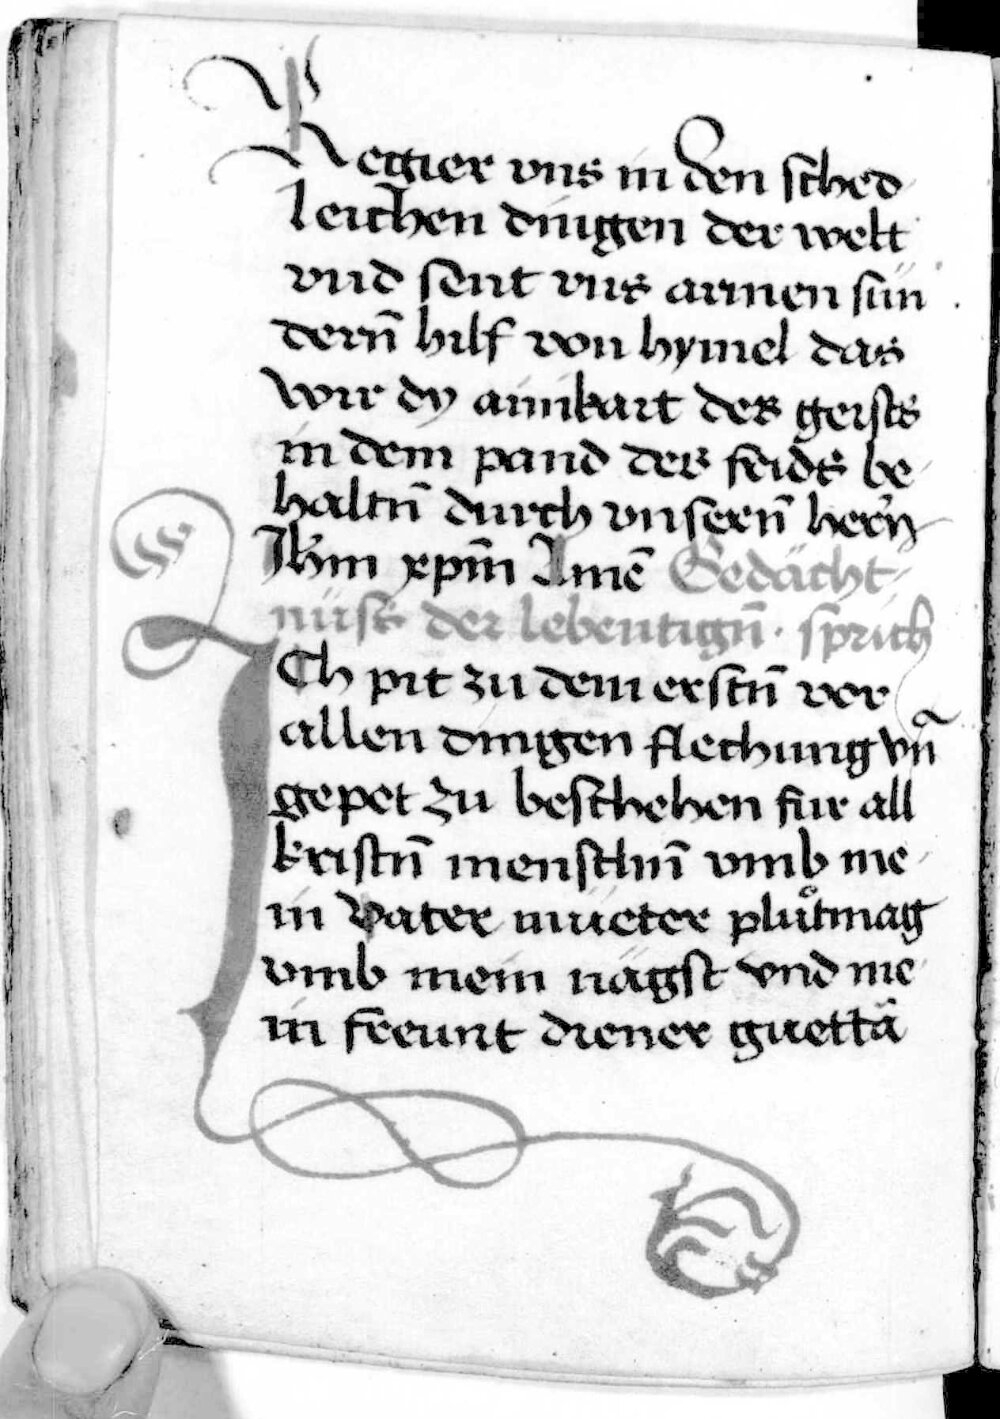 Regier vns in den sched
leichen dingen der welt
vnd sent vns armen sün
dern̄ hilf von hymel das
wir dy ainikait des geists
in dem pand des frids be
haltn̄ durch vnsern̄ hern̄
Jhm xpm̄ Amē Gedächt
nüss der lebentign̄. sprich
ICh pit zu dem erstn̄ vor
allen dingen flechung vn̄
gepet zu beschehen fur all
kristn̄ menschn̄ vmb me
in vater müeter plůtmag
vmb mein nägst vnd me
in freunt diener guettä